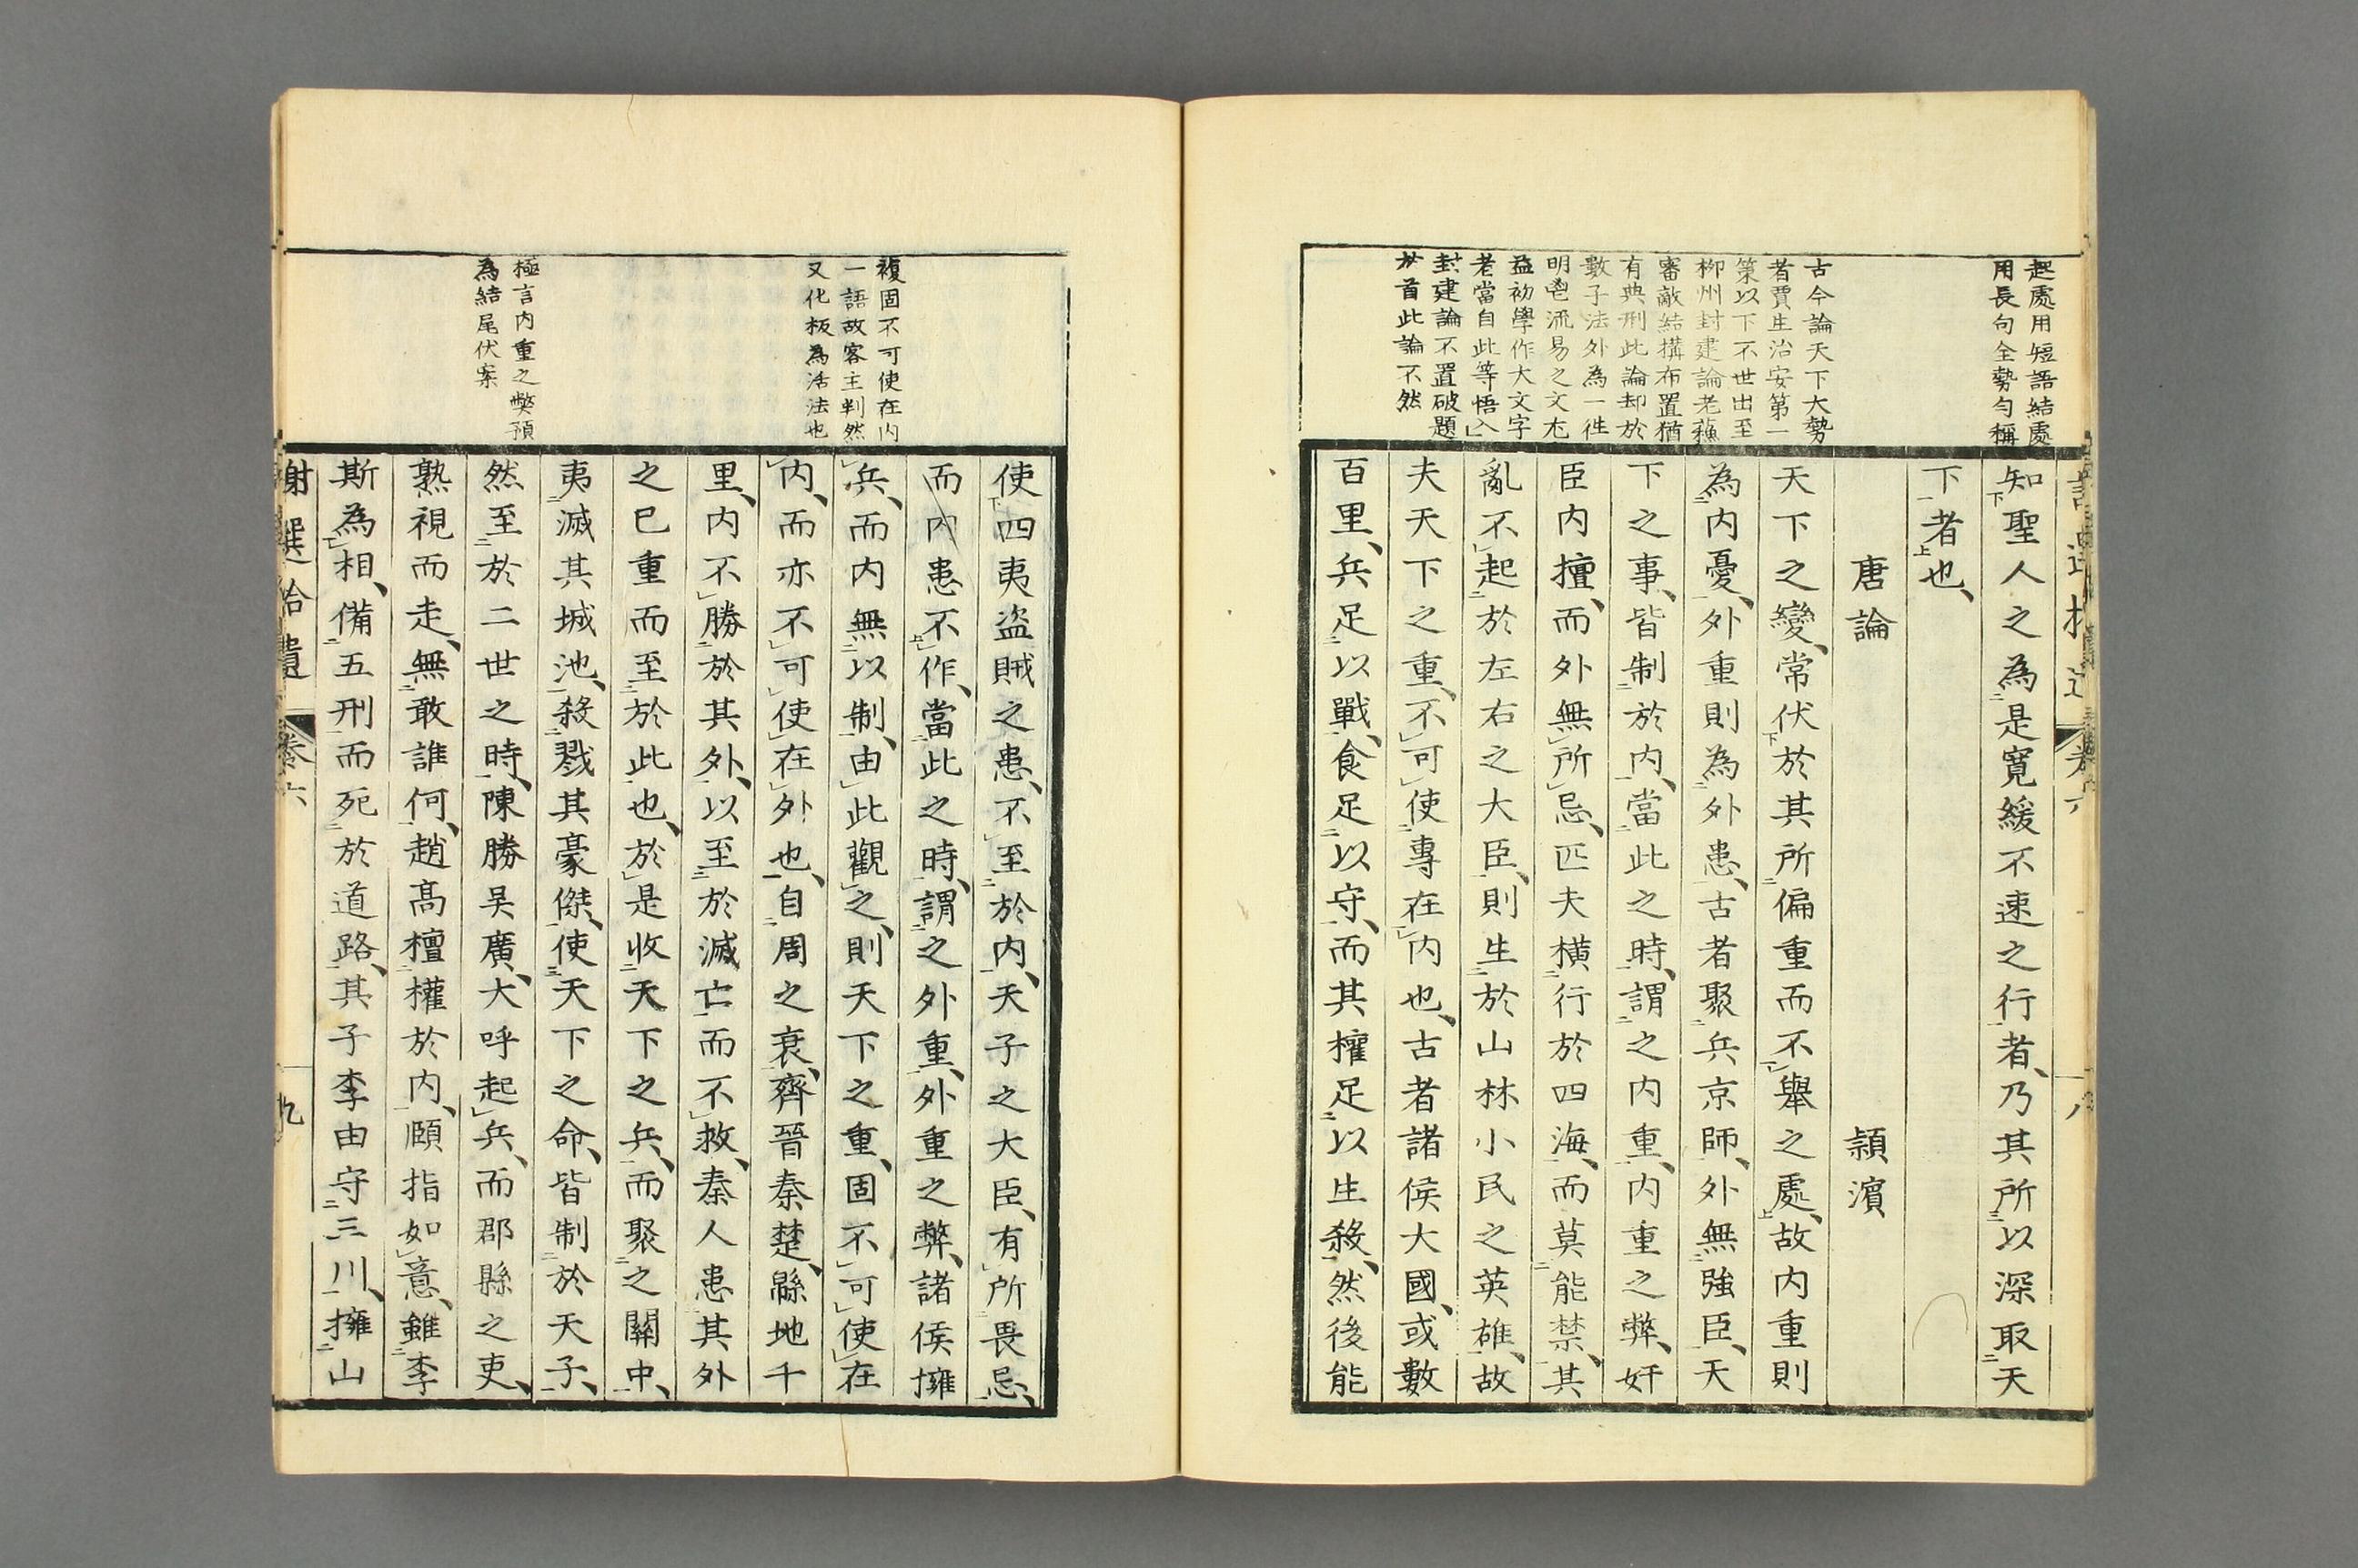 起處用短語結處
用長句全勢勻稱
古今論天下大勢
者賈生治安第一
策以下不世出至
柳州封建論老蘓
審敵結構布置猶
有典刑此論却於
數子法外為一徃
明鬯流易之文尤
益初學作大文字
老當自此等悟入
封建論不置破題
於首此論不然
知聖人之為是寬緩不速之行者、乃其所以深取天
下者也、
唐論　潁濱
天下之變、常伏於其所偏重而不舉之處、故内重則
為内憂、外重則為外患、古者聚兵京師、外無強臣、天
下之事、皆制於内、當此之時、謂之内重、内重之弊、奸
臣内擅、而外無所忌、匹夫横行於四海、而莫能禁、其
亂不起於左右之大臣、則生於山林小民之英雄、故
夫天下之重、不可使專在内也、古者諸侯大國、或數
百里、兵足以戰、食足以守、而其權足以生殺、然後能
複固不可使在内
一語故客主判然
又化板為活法也
極言内重之弊預
為結尾伏案
使四夷盗賊之患、不至於内、天子之大臣、有所畏忌、
而内患不作、當此之時、謂之外重、外重之弊、諸侯擁
兵、而内無以制、由此觀之、則天下之重、固不可使在
内、而亦不可使在外也、自周之衰、齊晉秦楚、緜地千
里、内不勝於其外、以至於滅亡而不救、秦人患其外
之已重而至於此也、於是收天下之兵、而聚之關中、
夷滅其城池、殺戮其豪傑、使天下之命、皆制於天子、
然至於二世之時、陳勝吳廣、大呼起兵、而郡縣之吏、
熟視而走、無敢誰何、趙高擅權於内、頤指如意、雖李
斯為相、備五刑而死於道路、其子李由守三川、擁山
謝選拾遺　卷六　九